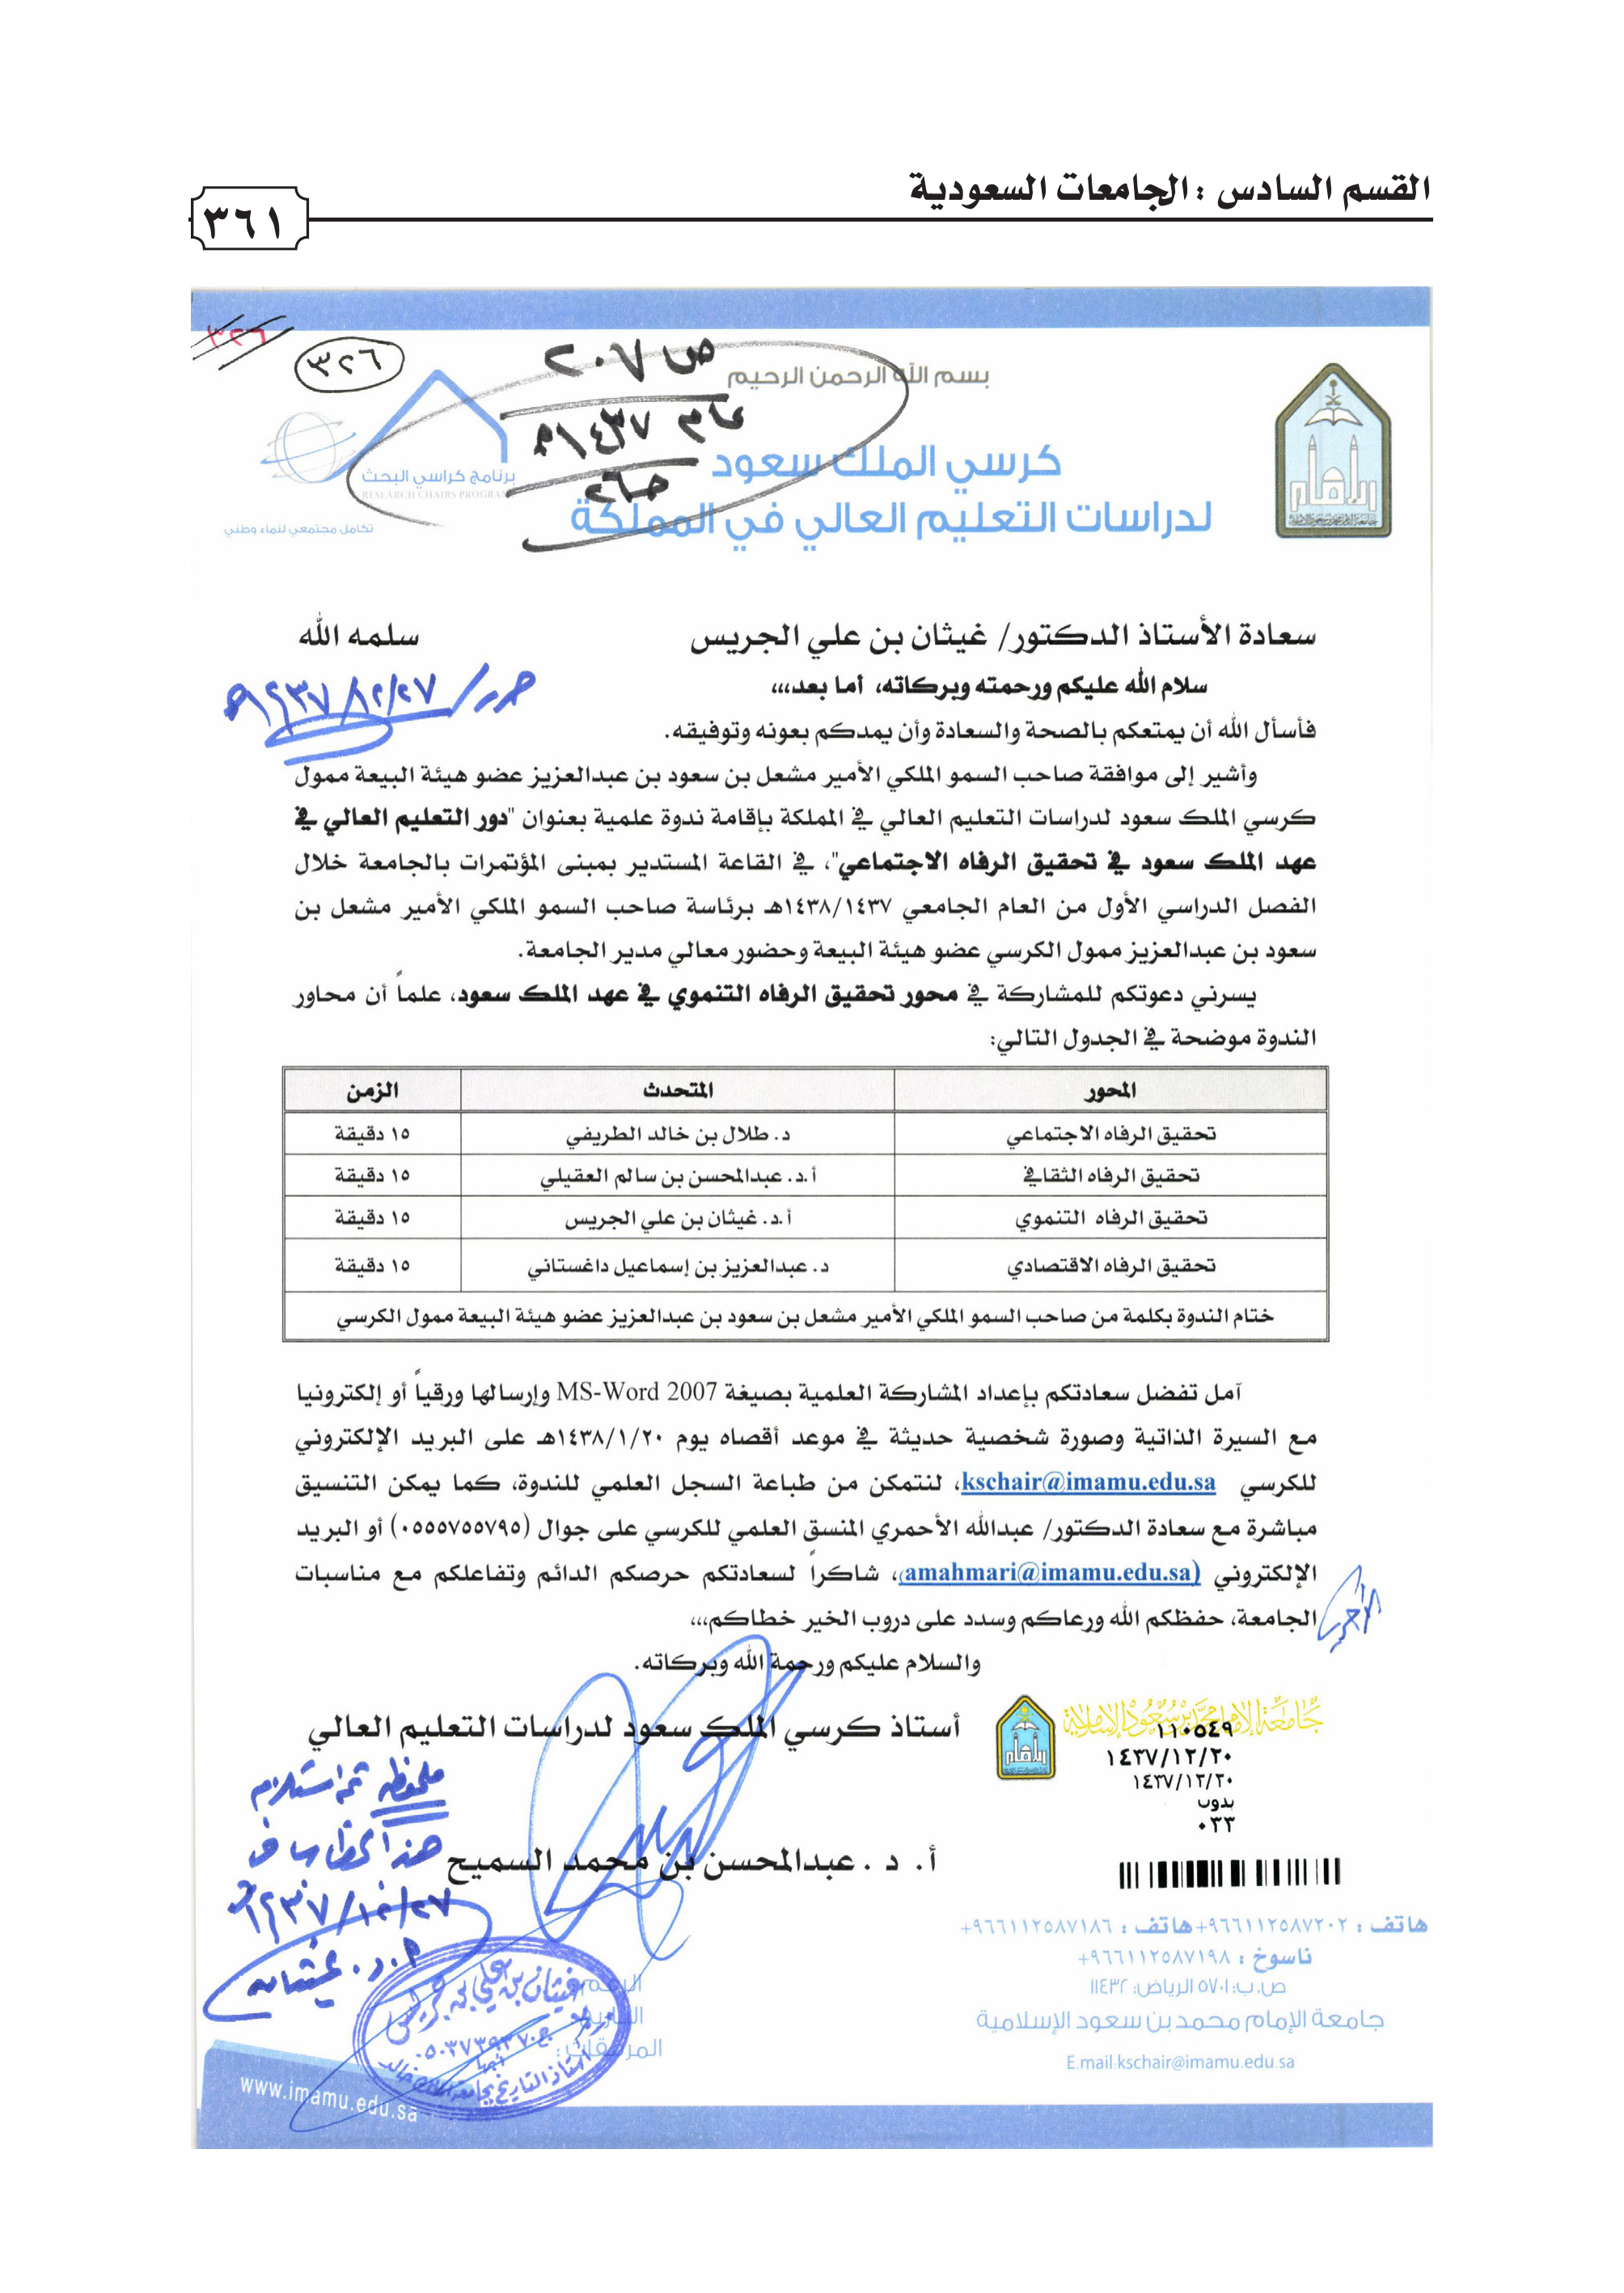 القسم السادس : الجامعات السعودية
٣٦١
٣٢٦
٣٢٦
ص ٢٠٧
بسم الله الرحمن الرحيم
كرسي الملك سعود
لدراسات التعليم العالي في المملكة
برنامج كراسي البحث
RESEARCH CHAIRS PROGRAM
تكامل مجتمعي لنماء وطني
سعادة الأستاذ الدكتور/ غيثان بن علي الجريس سلمه الله
سلام الله عليكم ورحمته وبركاته، أما بعد،،،
فأسأل الله أن يمتعكم بالصحة والسعادة وأن يمدكم بعونه وتوفيقه.
وأشير إلى موافقة صاحب السمو الملكي الأمير مشعل بن سعود بن عبدالعزيز عضو هيئة البيعة ممول
كرسي الملك سعود لدراسات التعليم العالي في المملكة بإقامة ندوة علمية بعنوان "دور التعليم العالي في
عهد الملك سعود في تحقيق الرفاه الاجتماعي"، في القاعة المستدير بمبنى المؤتمرات بالجامعة خلال
الفصل الدراسي الأول من العام الجامعي ١٤٣٨/١٤٣٧هـ برئاسة صاحب السمو الملكي الأمير مشعل بن
سعود بن عبدالعزيز ممول الكرسي عضو هيئة البيعة وحضور معالي مدير الجامعة.
يسرني دعوتكم للمشاركة في محور تحقيق الرفاه التنموي في عهد الملك سعود، علماً أن محاور
الندوة موضحة في الجدول التالي:
المحور المتحدث الزمن
تحقيق الرفاه الاجتماعي د. طلال بن خالد الطريفي ١٥ دقيقة
تحقيق الرفاه الثقافي أ.د. عبدالمحسن بن سالم العقيلي ١٥ دقيقة
تحقيق الرفاه التنموي أ.د. غيثان بن علي الجريس ١٥ دقيقة
تحقيق الرفاه الاقتصادي د. عبدالعزيز بن إسماعيل داغستاني ١٥ دقيقة
ختام الندوة بكلمة من صاحب السمو الملكي الأمير مشعل بن سعود بن عبدالعزيز عضو هيئة البيعة ممول الكرسي
آمل تفضل سعادتكم بإعداد المشاركة العلمية بصيغة MS-Word 2007 وإرسالها ورقياً أو إلكترونيا
مع السيرة الذاتية وصورة شخصية حديثة في موعد أقصاه يوم ١٤٣٨/١/٢٠هـ على البريد الإلكتروني
للكرسي kschair@imamu.edu.sa، لنتمكن من طباعة السجل العلمي للندوة، كما يمكن التنسيق
مباشرة مع سعادة الدكتور/ عبدالله الأحمري المنسق العلمي للكرسي على جوال (٠٥٥٥٧٥٥٧٩٥) أو البريد
الإلكتروني (amahmari@imamu.edu.sa)، شاكراً لسعادتكم حرصكم الدائم وتفاعلكم مع مناسبات
الجامعة، حفظكم الله ورعاكم وسدد على دروب الخير خطاكم،،،
والسلام عليكم ورحمة الله وبركاته.
أستاذ كرسي الملك سعود لدراسات التعليم العالي
أ. د . عبدالمحسن بن محمد السميح
جامعة الإمام محمد بن سعود الإسلامية
١١٠٥٤٩
١٤٣٧/١٢/٢٠
١٤٣٧/١٢/٢٠
بدون
٠٣٣
ملحوظه تم استلام
هذا الخطاب في
١٤٣٧/١٢/٢٧
أ.د. غيثان
هاتف : ٩٦٦١١٢٥٨٧٢٠٢+ هاتف : ٩٦٦١١٢٥٨٧١٨٦+
ناسوخ : ٩٦٦١١٢٥٨٧١٩٨+
ص.ب: ٥٧٠١ الرياض: ١١٤٣٢
جامعة الإمام محمد بن سعود الإسلامية
E.mail.kschair@imamu.edu.sa
الرقم
التاريخ
المرفقات :
غيثان بن علي بن جريس
أستاذ التاريخ بجامعة الملك خالد
www.imamu.edu.sa